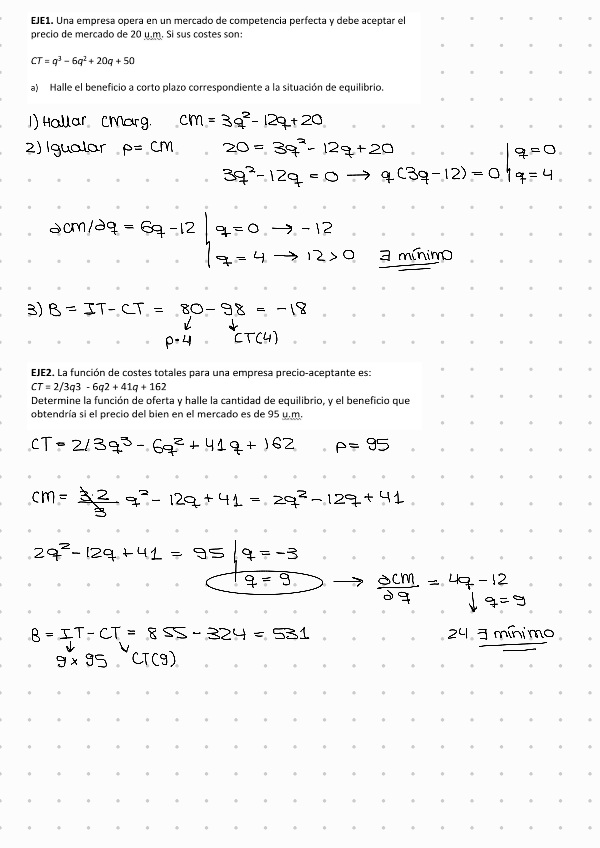 EJE1. Una empresa opera en un mercado de competencia perfecta y debe aceptar el
precio de mercado de 20 u.m. Si sus costes son:
CT = q³ – 6q² + 20q + 50
a) Halle el beneficio a corto plazo correspondiente a la situación de equilibrio.
1) Hallar CMarg. CM = 3q² - 12q + 20
2) Igualar p = CM 20 = 3q² - 12q + 20 q = 0
3q² - 12q = 0 → q(3q - 12) = 0 q = 4
∂CM/∂q = 6q - 12 q = 0 → -12
q = 4 → 12 > 0 ∃ mínimo
3) B = IT - CT = 80 - 98 = -18
p·4 CT(4)
EJE2. La función de costes totales para una empresa precio-aceptante es:
CT = 2/3q3 - 6q2 + 41q + 162
Determine la función de oferta y halle la cantidad de equilibrio, y el beneficio que
obtendría si el precio del bien en el mercado es de 95 u.m.
CT = 2/3q³ - 6q² + 41q + 162 p = 95
CM = 3·2/3 q² - 12q + 41 = 2q² - 12q + 41
2q² - 12q + 41 = 95 q = -3
q = 9 → ∂CM/∂q = 4q - 12
↓ q = 9
B = IT - CT = 855 - 324 = 531 24 ∃ mínimo
9 x 95 CT(9)